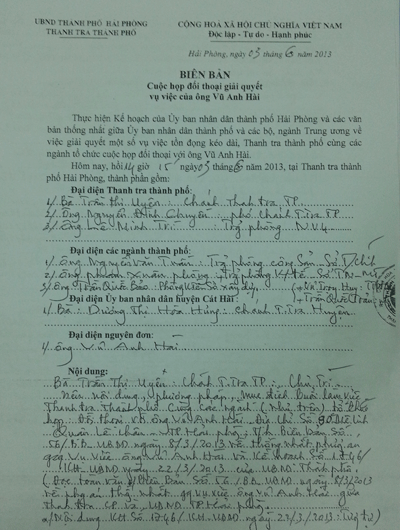 UBND THÀNH PHỐ HẢI PHÒNG
THANH TRA THÀNH PHỐ
CỘNG HOÀ XÃ HỘI CHỦ NGHĨA VIỆT NAM
Độc lập - Tự do - Hạnh phúc
Hải Phòng, ngày 03 tháng 6 năm 2013
BIÊN BẢN
Cuộc họp đối thoại giải quyết
vụ việc của ông Vũ Anh Hải
Thực hiện Kế hoạch của Ủy ban nhân dân thành phố Hải Phòng và các văn
bản thống nhất giữa Ủy ban nhân dân thành phố và các bộ, ngành Trung ương về
việc giải quyết một số vụ việc tồn đọng kéo dài, Thanh tra thành phố cùng các
ngành tổ chức cuộc họp đối thoại với ông Vũ Anh Hải.
Hôm nay, hồi 14 giờ 15 ngày 03 tháng 6 năm 2013, tại Thanh tra thành
phố Hải Phòng, thành phần gồm:
Đại diện Thanh tra thành phố:
1/ Bà Trần Thị Uyên: Chánh Thanh tra TP
2/ Ông Nguyễn Đình Chuyền phó Chánh T.tra TP
3/ Ông Lê Minh Trí Trg phòng NV4
Đại diện các ngành thành phố:
1/ Ông Nguyễn Văn Tuấn: Trg phòng công sản - Sở T/chính
2/ Ông phòng
3/ Ông Trần Quốc Bảo: Phòng Sở Xây dựng
Đại diện Ủy ban nhân dân huyện Cát Hải:
1/ Bà: Dương Thị Hoa Hùng: Chánh T.tra Huyện
Đại diện nguyên đơn:
1/ Ông Vũ Anh Hải
Nội dung:
Bà Trần Thị Uyên: Chánh T.Tra TP: Chủ Trì
nêu nội dung, phương pháp, mục đích buổi làm việc
Thanh tra Thành phố cùng các ngành (như trên) tổ chức
họp đối thoại với ông Vũ Anh Hải địa chỉ số
Quận Lê Chân - TP Hải phòng: Biên Bản số
56/BB UBND ngày 8/3/2013 về thống nhất phương án
gq vụ việc ông Vũ Anh Hải và Kế hoạch số 1746/
KH UBND ngày 22/3/2013 của UBND Thành phố.
(Đọc toàn văn Biên Bản số 56/BB UBND ngày 8/3/2013
về phg án thống nhất gq vụ việc ông Vũ Anh Hải giữa
Thanh tra CP và UBND TP Hải Phòng.
a/ Nội dung KH số 1746/KH UBND ngày 22/3/2013